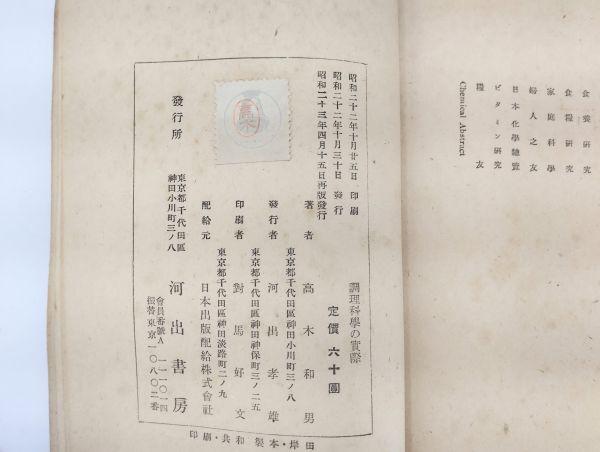 食養研究
食糧研究
家庭科學
婦人之友
日本化學總覽
ビタミン研究
糧友
Chemical Abstract
調理科學の實際
定價六十圓
昭和二十二年十月廿五日 印刷
昭和二十二年十月三十日 發行
昭和二十三年四月十五日再版發行
著者 高木和男
東京都千代田區神田小川町三ノ八
發行者 河出孝雄
東京都千代田區神田神保町三ノ二五
印刷者 對馬好文
東京都千代田區神田淡路町二ノ九
配給元 日本出版配給株式會社
發行所
東京都千代田區
神田小川町三ノ八
河出書房
會員番號A一一一〇一四
振替東京一〇八〇二番
印刷・共和 製本・岸田
高木